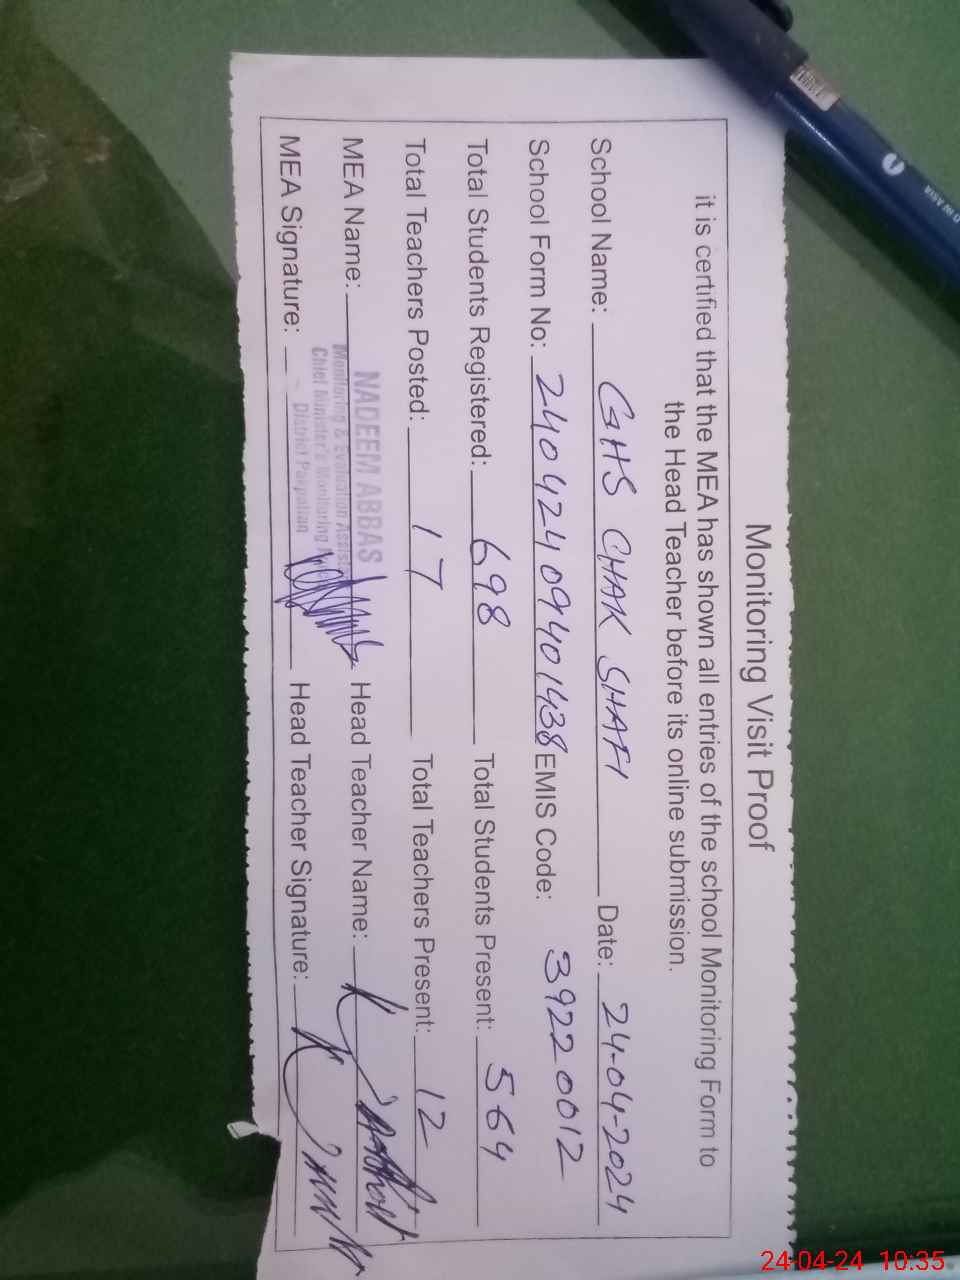 Monitoring Visit Proof
it is certified that the MEA has shown all entries of the school Monitoring Form to
the Head Teacher before its online submission.
School Name: GHS CHAK SHAFI Date: 24-04-2024
School Form No: 24042409401438 EMIS Code: 39220012
Total Students Registered: 698 Total Students Present: 564
Total Teachers Posted: 17 Total Teachers Present: 12
MEA Name: NADEEM ABBAS Head Teacher Name:
Monitoring & Evaluation Assist
Chief Minister's Monitoring
District Pakpattan
MEA Signature: Head Teacher Signature:
24-04-24 10:35